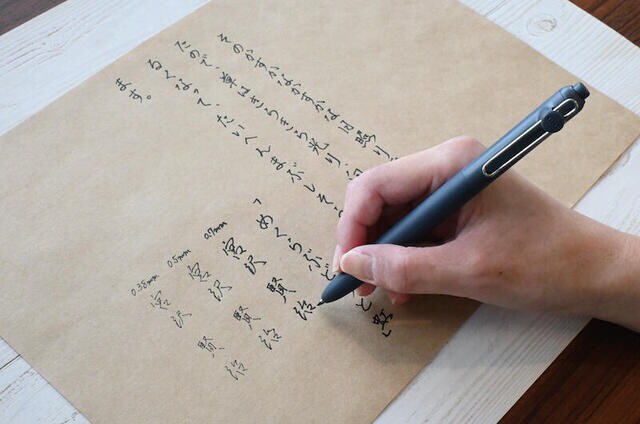 そのかすかなかすかな日照り
たので、草はきらきら光り、向
るくなって、たいへんまぶしそ
ます。
「めくらぶど と虹
0.7mm 宮沢賢治
0.5mm 宮沢賢治
0.38mm 宮沢賢治